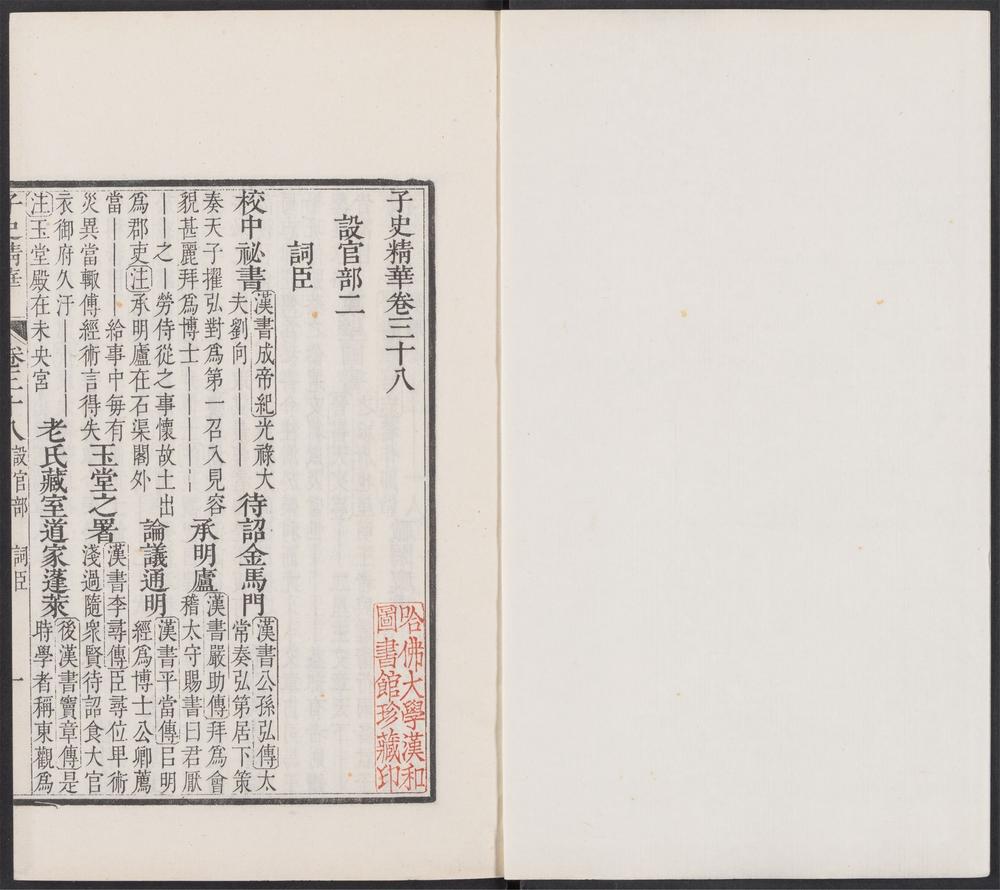 子史精華卷三十八
設官部二
詞臣
校中祕書
漢書成帝紀光祿大
夫劉向————
待詔金馬門
漢書公孫弘傳太
常奏弘第居下策
奏天子擢弘對爲第一召入見容
貌甚麗拜爲博士—————
承明廬
漢書嚴助傳拜爲會
稽太守賜書曰君厭
——之—勞侍從之事懷故土出
爲郡吏注承明廬在石渠閣外
論議通明
漢書平當傳㠯明
經爲博士公卿薦
當————給事中每有
災異當輒傅經術言得失
玉堂之署
漢書李尋傳臣尋位卑術
淺過隨衆賢待詔食大官
衣御府久汙————
注玉堂殿在未央宮
老氏藏室道家蓬萊
後漢書竇章傳是
時學者稱東觀爲
子史精華 卷三十八 設官部 詞臣 一
哈佛大學漢和
圖書館珍藏印